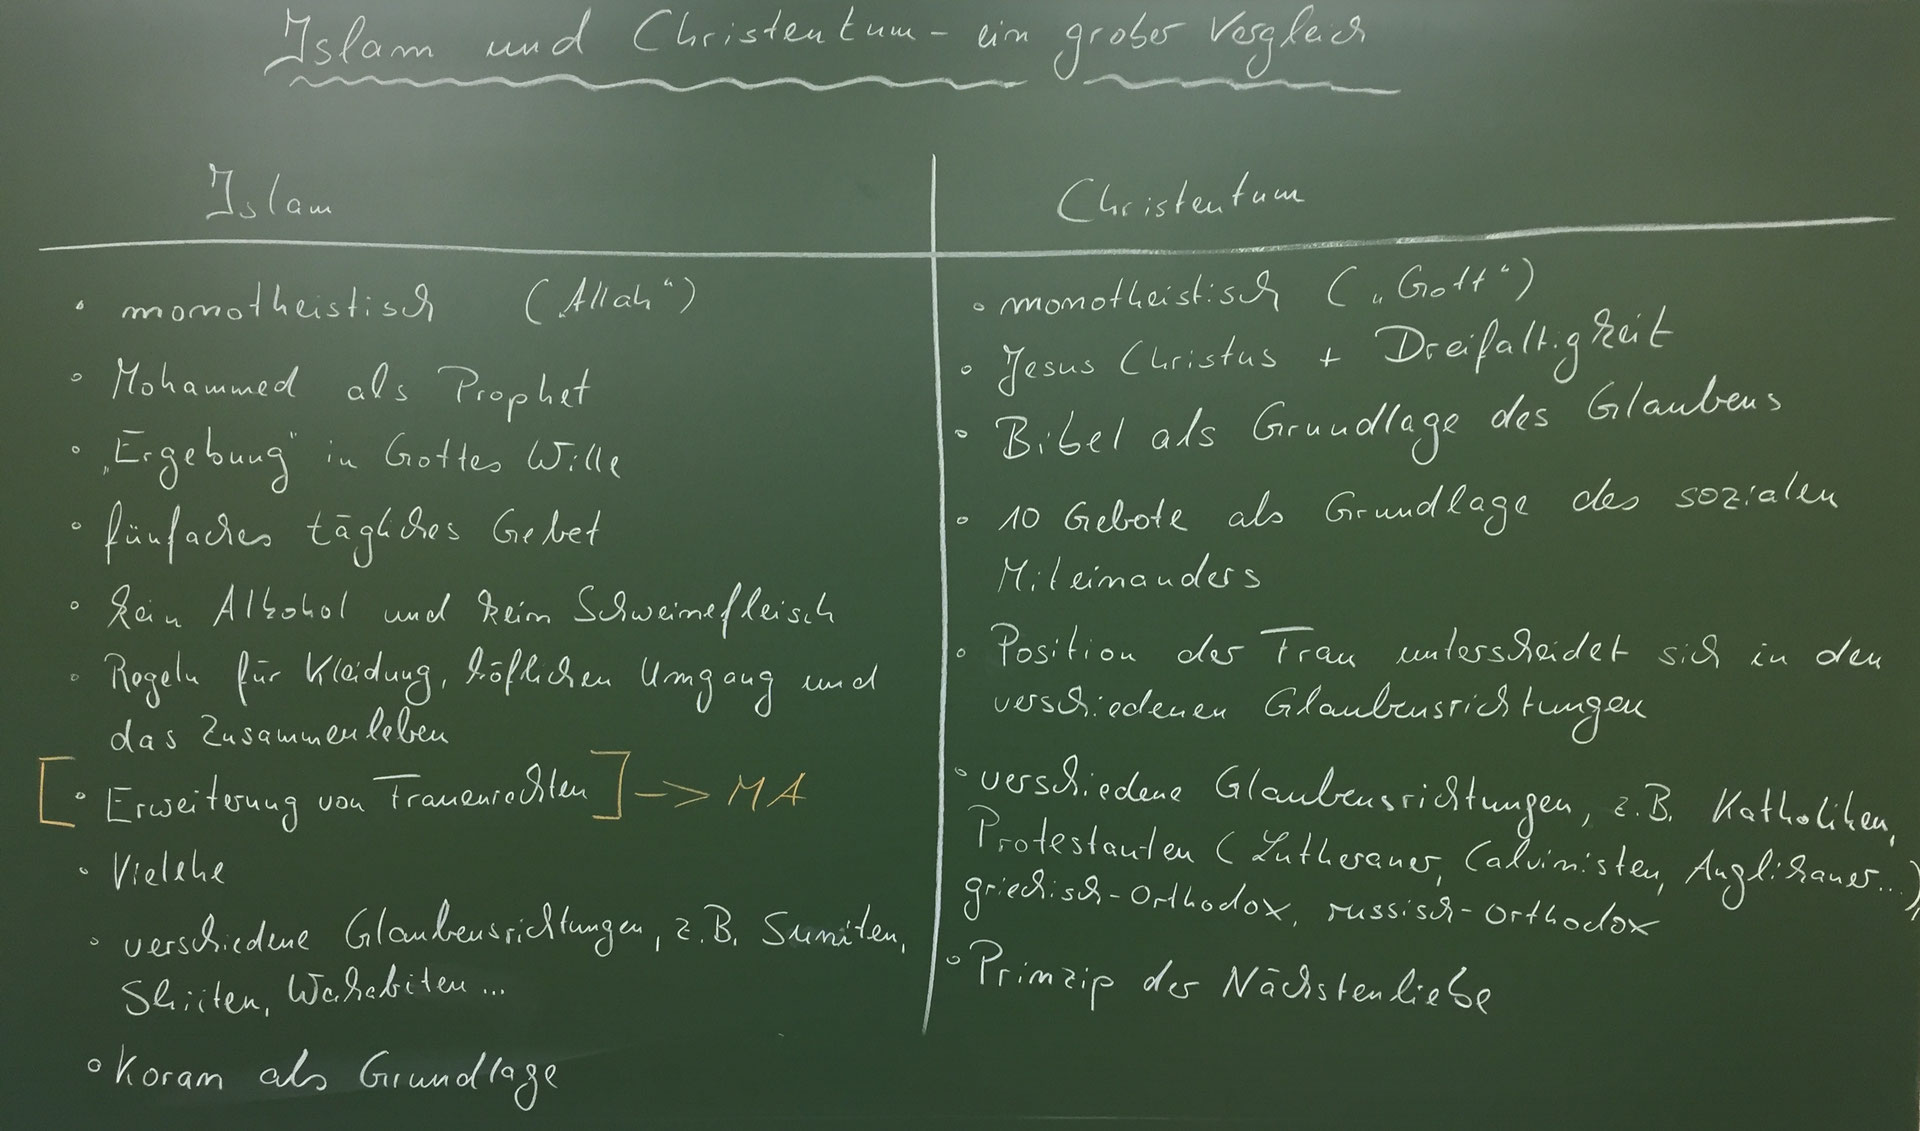 Islam und Christentum - ein grober Vergleich
Islam
• monotheistisch („Allah“)
• Mohammed als Prophet
• „Ergebung“ in Gottes Wille
• fünffaches tägliches Gebet
• kein Alkohol und kein Schweinefleisch
• Regeln für Kleidung, höflichen Umgang und
das Zusammenleben
[• Erweiterung von Frauenrechten] –> MA
• Vielehe
• verschiedene Glaubensrichtungen, z.B. Suniten,
Shiiten, Wahabiten ...
• Koran als Grundlage
Christentum
• monotheistisch („Gott“)
• Jesus Christus + Dreifaltigkeit
• Bibel als Grundlage des Glaubens
• 10 Gebote als Grundlage des sozialen
Miteinanders
• Position der Frau unterscheidet sich in den
verschiedenen Glaubensrichtungen
• verschiedene Glaubensrichtungen, z.B. Katholiken,
Protestanten (Lutheraner, Calvinisten, Anglikaner...),
griechisch-Orthodox, russisch-Orthodox
• Prinzip der Nächstenliebe